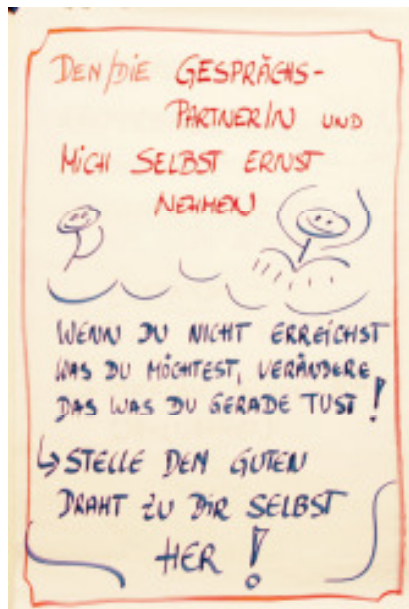 DEN/DIE GESPRÄCHS-
PARTNER/N UND
MICH SELBST ERNST
NEHMEN
WENN DU NICHT ERREICHST
WAS DU MÖCHTEST, VERÄNDERE
DAS WAS DU GERADE TUST!
↳ STELLE DEN GUTEN
DRAHT ZU DIR SELBST
HER!